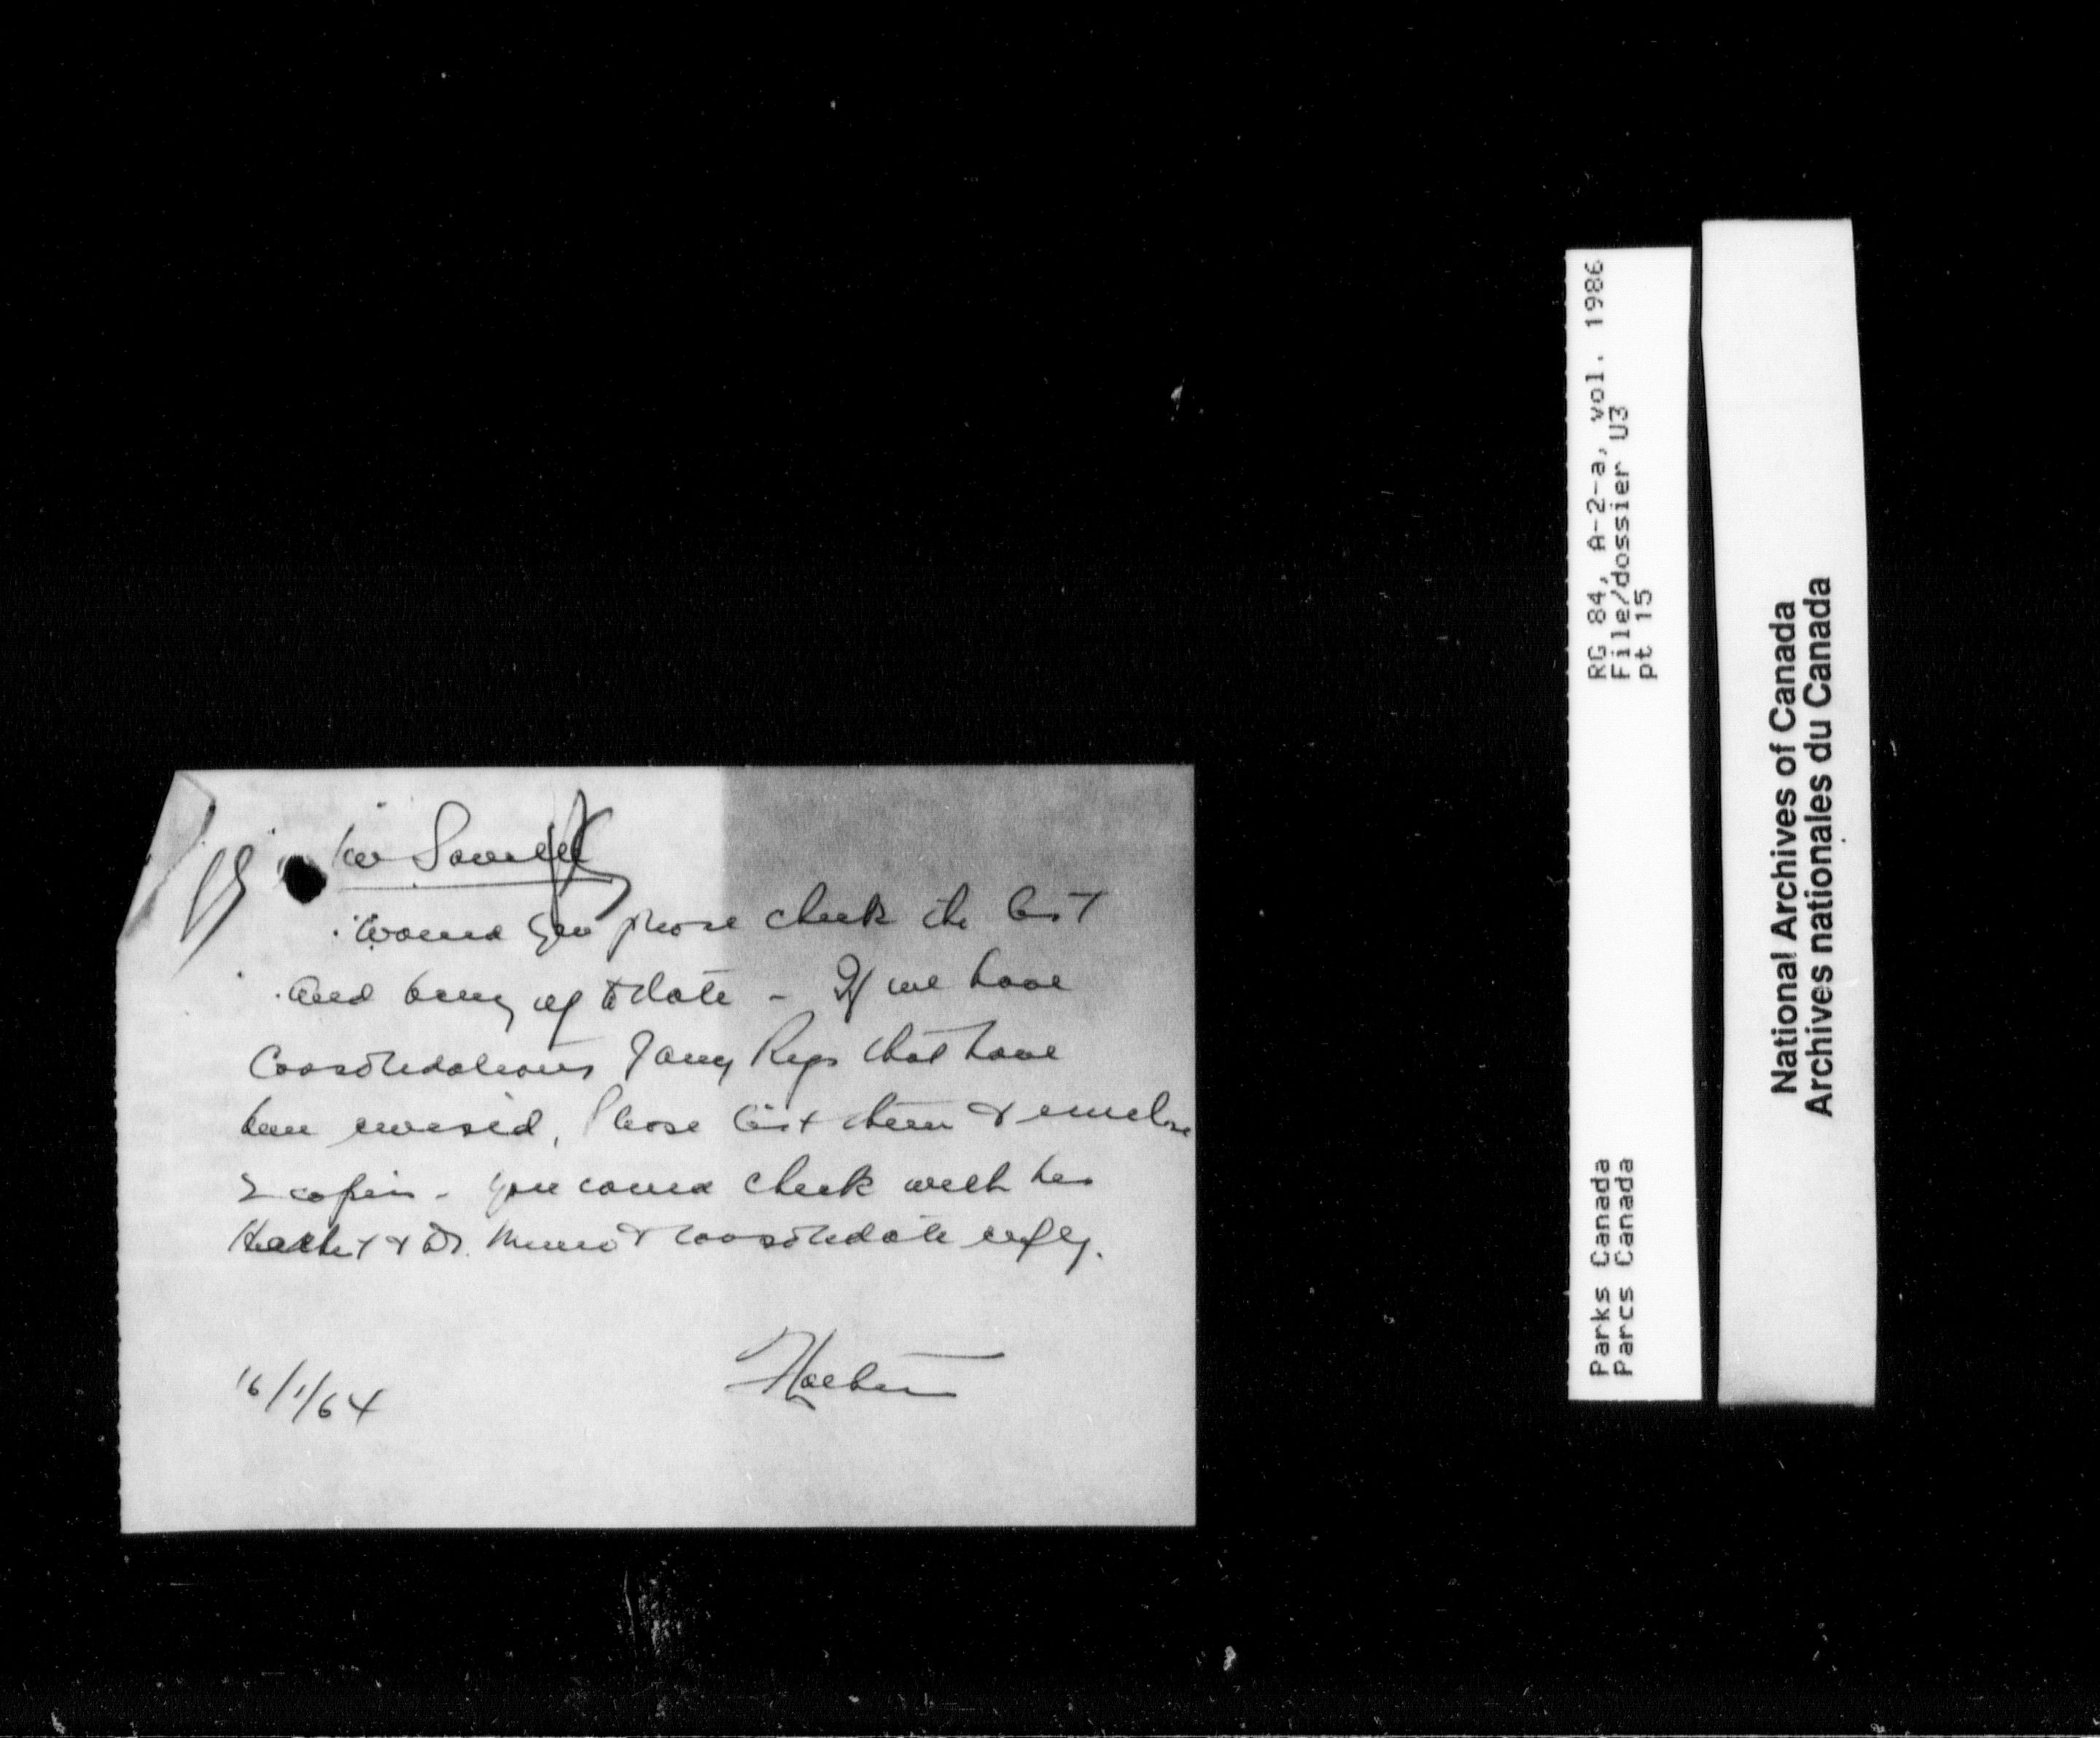 Would you please check the list
and bring up to date - If we have
Consolidations of any Regs that have
been revised, Please list them & enclose
2 copies - You could check with
& Dr. Munro & consolidate reply.
16/1/64
RG 84, A-2-a, vol. 1986
File/dossier U3
pt 15
Parks Canada
Parcs Canada
National Archives of Canada
Archives nationales du Canada